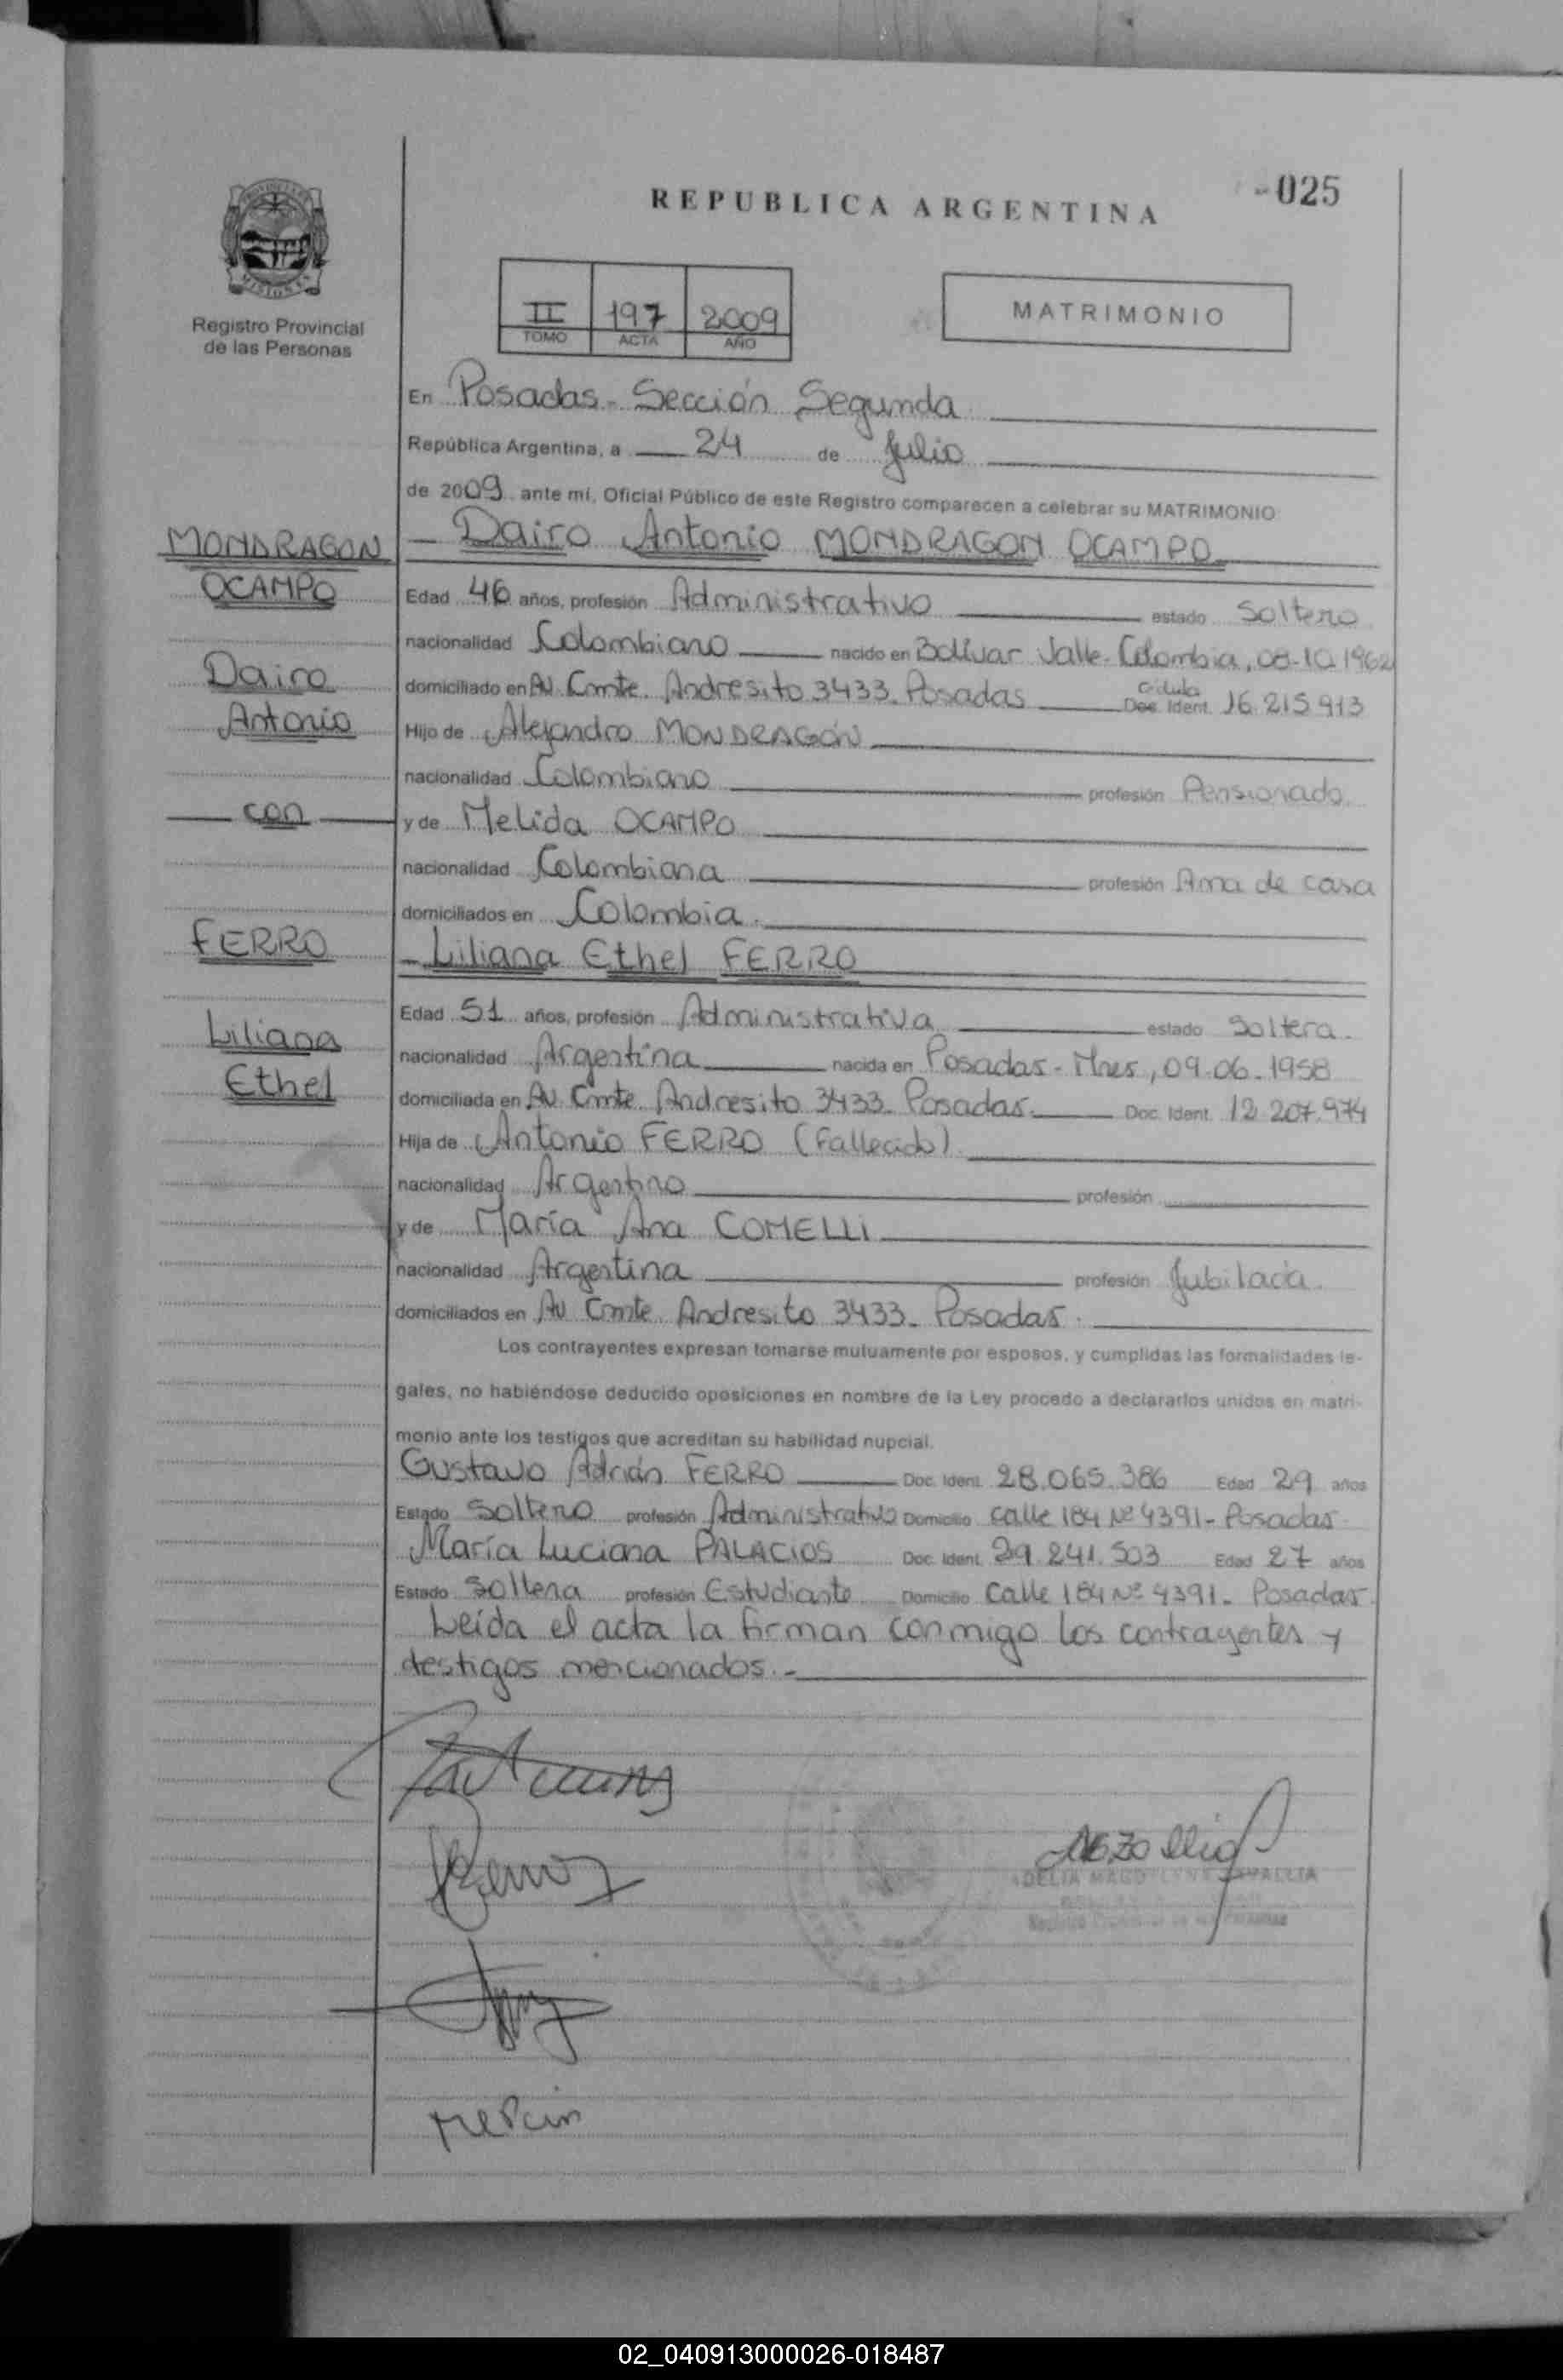 REPUBLICA ARGENTINA
-025
PROVINCIA
MISIONES
Registro Provincial
de las Personas
II 197 2009
TOMO ACTA AÑO
MATRIMONIO
En Posadas - Sección Segunda
República Argentina, a 24 de Julio
de 2009 ante mí, Oficial Público de este Registro comparecen a celebrar su MATRIMONIO
MONDRAGON
OCAMPO
Dairo
Antonio
con
FERRO
Liliana
Ethel
- Dairo Antonio MONDRAGON OCAMPO
Edad 46 años, profesión Administrativo estado Soltero
nacionalidad Colombiano nacido en Bolívar Valle - Colombia, 08-10-1962
domiciliado en Av. Cmte. Andresito 3433 - Posadas Cédula Doc. Ident. 16.215.913
Hijo de Alejandro MONDRAGÓN
nacionalidad Colombiano profesión Pensionado.
y de Melida OCAMPO
nacionalidad Colombiana profesión Ama de casa
domiciliados en Colombia.
- Liliana Ethel FERRO
Edad 51 años, profesión Administrativa estado Soltera.
nacionalidad Argentina nacida en Posadas - Mnes, 09-06-1958
domiciliada en Av. Cmte. Andresito 3433 - Posadas. Doc. Ident. 12.207.974
Hija de Antonio FERRO (Fallecido)
nacionalidad Argentino profesión
y de María Ana COMELLI
nacionalidad Argentina profesión Jubilada.
domiciliados en Av. Cmte. Andresito 3433 - Posadas.
Los contrayentes expresan tomarse mutuamente por esposos, y cumplidas las formalidades le-
gales, no habiéndose deducido oposiciones en nombre de la Ley procedo a declararlos unidos en matri-
monio ante los testigos que acreditan su habilidad nupcial.
Gustavo Adrián FERRO Doc. Ident. 28.065.386 Edad 29 años
Estado Soltero profesión Administrativo Domicilio calle 184 Nº 4391 - Posadas
María Luciana PALACIOS Doc. Ident. 29.241.503 Edad 27 años
Estado Soltera profesión Estudiante Domicilio Calle 184 Nº 4391 - Posadas
Leída el acta la firman conmigo los contrayentes y
testigos mencionados.-
DELIA
02_040913000026-018487